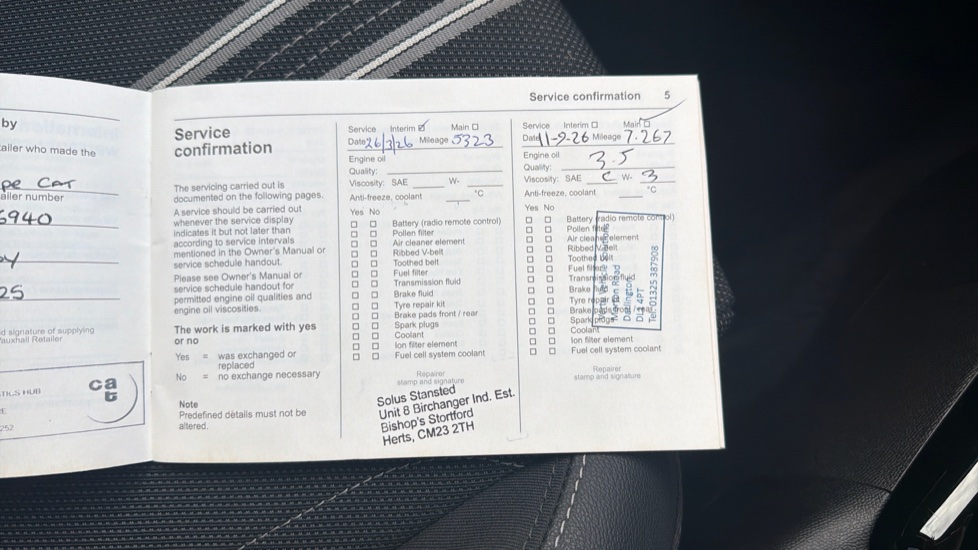 by
ailer who made the
pe Car
ailer number
6940
25
d signature of supplying
Vauxhall Retailer
TICS HUB
252
cat
Service
confirmation
The servicing carried out is
documented on the following pages.
A service should be carried out
whenever the service display
indicates it but not later than
according to service intervals
mentioned in the Owner's Manual or
service schedule handout.
Please see Owner's Manual or
service schedule handout for
permitted engine oil qualities and
engine oil viscosities.
The work is marked with yes
or no
Yes = was exchanged or
replaced
No = no exchange necessary
Note
Predefined details must not be
altered.
Service confirmation 5
Service Interim Main
Date 26/3/26 Mileage 5323
Engine oil
Quality:
Viscosity: SAE W- °C
Anti-freeze, coolant
Yes No
Battery (radio remote control)
Pollen filter
Air cleaner element
Ribbed V-belt
Toothed belt
Fuel filter
Transmission fluid
Brake fluid
Tyre repair kit
Brake pads front / rear
Spark plugs
Coolant
Ion filter element
Fuel cell system coolant
Repairer
stamp and signature
Solus Stansted
Unit 8 Birchanger Ind. Est.
Bishop's Stortford
Herts, CM23 2TH
Service Interim Main
Date 11-9-26 Mileage 7.267
Engine oil 3.5
Quality:
Viscosity: SAE C W- 3
Anti-freeze, coolant °C
Yes No
Battery (radio remote control)
Pollen filter
Air cleaner element
Ribbed V-belt
Toothed belt
Fuel filter
Transmission fluid
Brake fluid
Tyre repair kit
Brake pads front / rear
Spark plugs
Coolant
Ion filter element
Fuel cell system coolant
Road
Darlington
DL1 4PT
Tel: 01325 387908
Repairer
stamp and signature